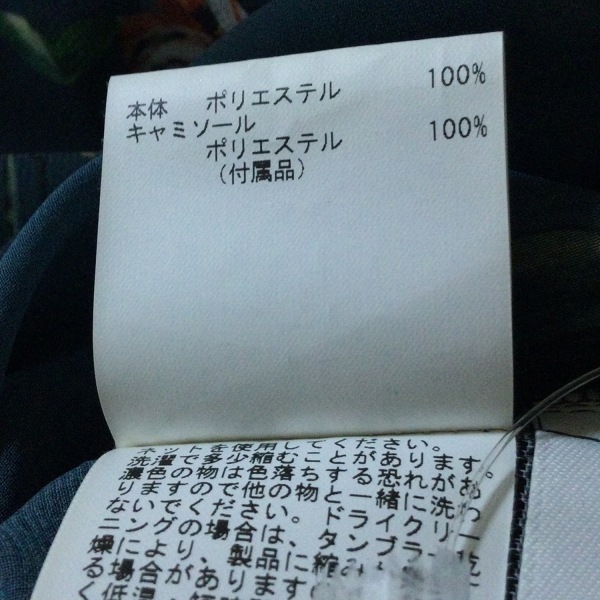 本体 ポリエステル 100%
キャミソール
ポリエステル 100%
(付属品)
ネットを使用してください。
洗濯で多少縮むことがあります。
濃色の物は色落ちする恐れがあ
りますので他の物と一緒に洗わ
ないでください。ドライクリー
ニングの場合は、タンブラー乾
燥により、製品に縮み
る場合があります
く低温